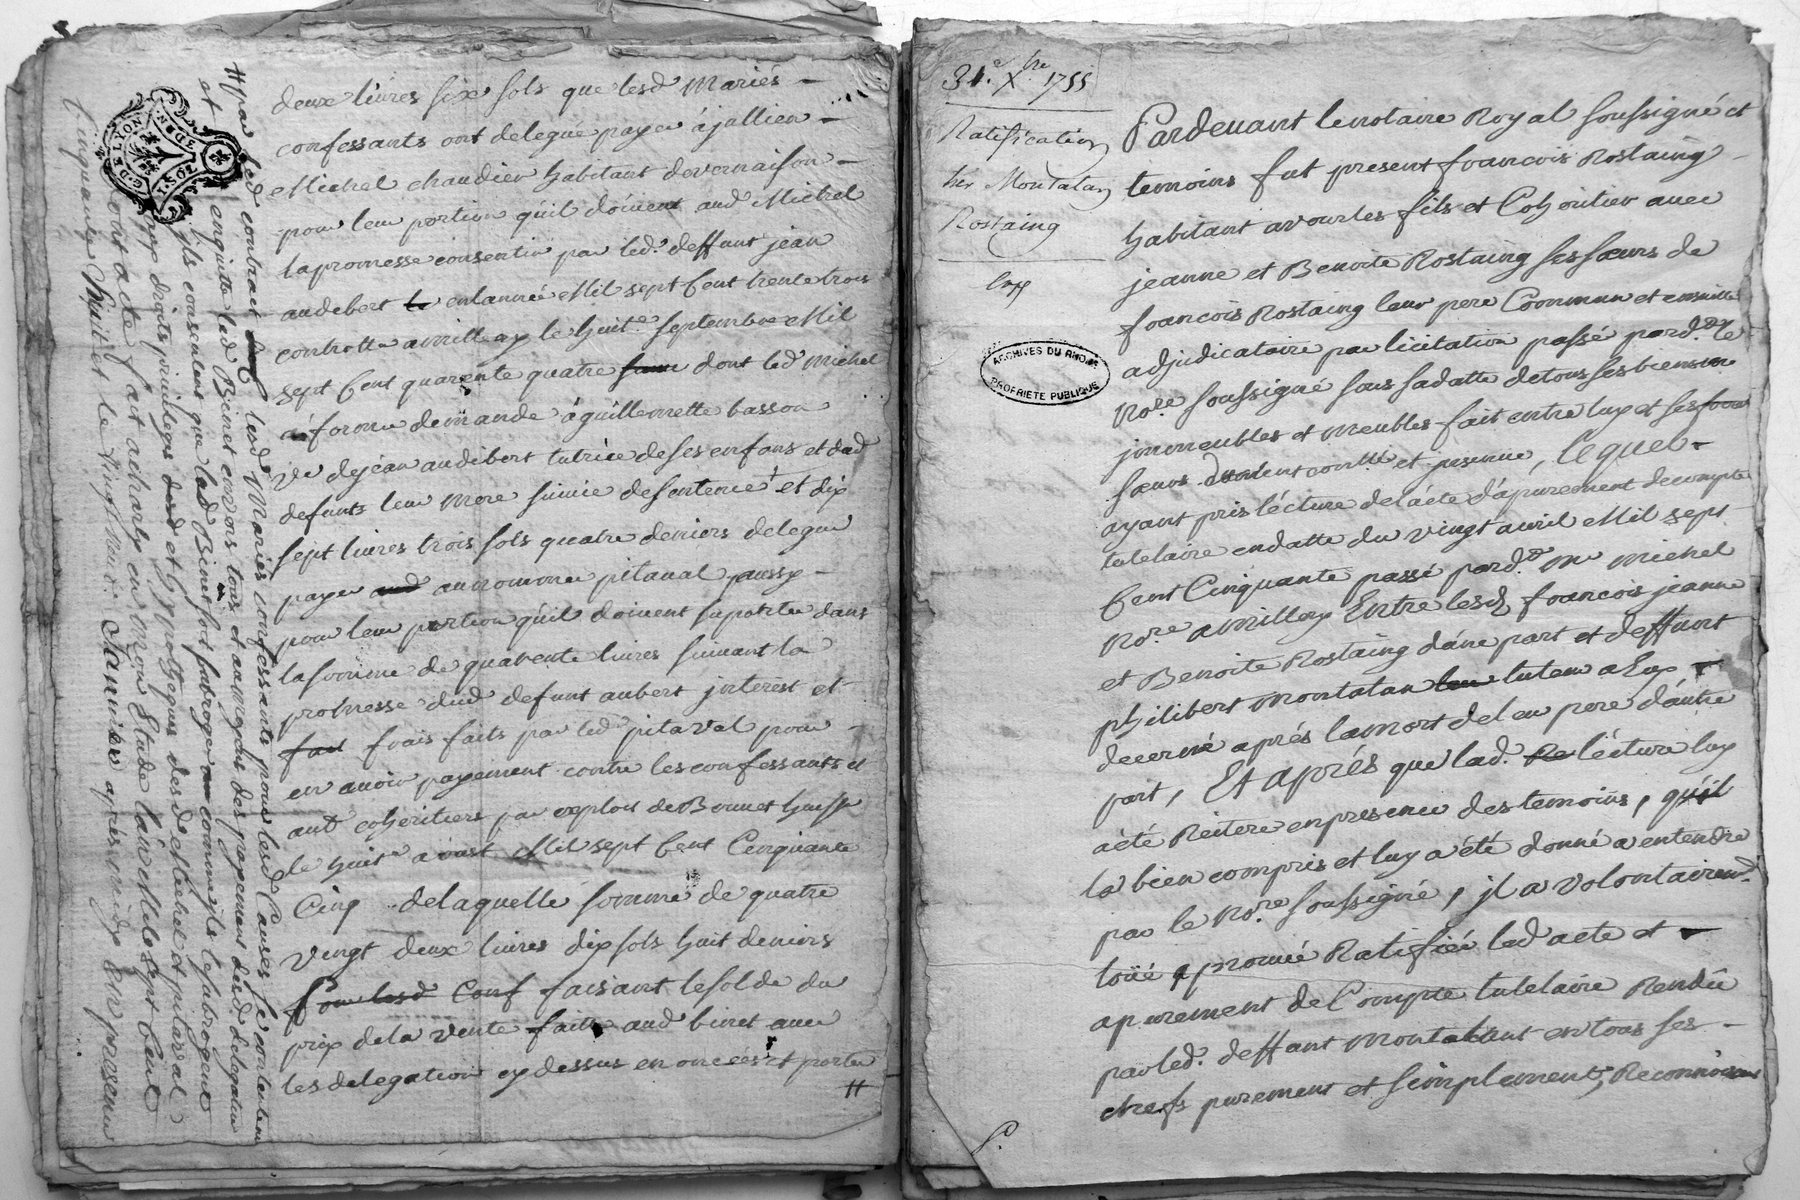 deux livres six sols que lesd mariés
confessants ont delegué payer à jallien
Michel chaudier habitant devernaison
pour leur portion qu'il doivent aud Michel
la promesse consentie par led. deffunt jean
audebert en lannée Mil sept Cent trente trois
controllé a millery le huit.e septembre Mil
sept Cent quarente quatre dont led Michel
a formé demande à guillemette basson
v.e de jean audibert tutrice de ses enfans et dud
defunts leur mere suivie de sentence et dix
sept livres trois sols quatre deniers delegué
payer au nommé pitaval aussy
pour leur portion qu'il doivent suporter dans
la somme de quarente livres suivant la
promesse dud defunt aubert jnterest et
frais faits par led pitaval pour
en avoir payement contre les confessants et
aut coheritiers par exploit de Bonnet huissr
le huit.e aoust Mil sept Cent Cinquante
Cinq de laquelle somme de quatre
vingt deux livres dix sols huit deniers
faisant le solde du
prix de la vente faite aud binet avec
les delegation cy dessus enoncées et portée
//
// par led contrait lesd Mariés confessants pour lesd Causes se contentent
et en quitte led Binet envers tous et au moyen des payement dud delegation
jls consentent que led Binet soit subrogé comme ils le subrogent
aux droits privileges et hypoteques desd Michel et pitaval
dont acte fait a charly en mon Etude l'an Mil sept Cent
Cinquante huit et le vingt neuf Janvier après midy en presence
G.D. DE LYON
31.e Xbre 1755
Ratification
her Montatan
Rostaing
Exp
Pardevant le notaire Royal soussigné et
temoins fut present francois Rostaing
habitant a vourles fils et Cohoritier avec
jeanne et Benoite Rostaing ses sœurs de
francois Rostaing leur pere Commun et ensuitte
adjudicataire par licitation passé pard.t le
No.re soussigné sous sa datte de tous ses biens
jmmeubles et meubles fait entre luy et ses
sœurs duement contllé et jnsinue, lequel
ayant pris lécture de lacte d'apurement de compte
tutelaire en datte du vingt avril Mil sept
Cent Cinquante passé pard.t Me Michel
No.re a millery Entre lesd francois jeanne
et Benoite Rostaing d'une part et deffunt
philibert montatan tuteur a Eux
decerné aprés la mort de leur pere d'autre
part, Et aprés que lad. lécture luy
a été Réiteré en presence des temoins, qu'il
la bien compris et luy a été donné a entendre
par le No.re soussigné, jl a volontairem.t
loüé aprouvé Ratifiée led acte et
apurement de Compte tutelaire Rendû
par led. deffant montatant en tous ses
chefs purement et simplement, Reconnoissant
ARCHIVES DU RHONE
PROPRIETE PUBLIQUE